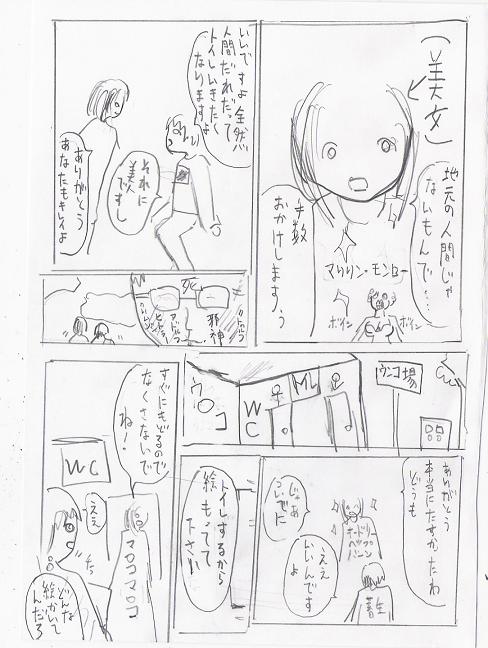 (美女)
地元の人間じゃ
ないもんで…
お手数
おかけしますぅ
マリリン・モンロー
ボイン
ボイン
いいですよ全然
人間だれだって
トイレいきたく
なりますよ
それに
美人ですし
ありがとう
あなたもキレイよ
邪神
死
アドルフ
ヒトラー
ウンコ場
WC
ウロコ
ありがとう
本当にたすかったわ
どうも
オードリー
ヘップ
バーン
じゃあ
ついでに
ええ
いいんです
よ
畜生
トイレするから
絵もってて
下さい
すぐにもどるので
なくさないで
ね!
WC
ええ
マロコマロコ
どんな
絵かいて
んだろ